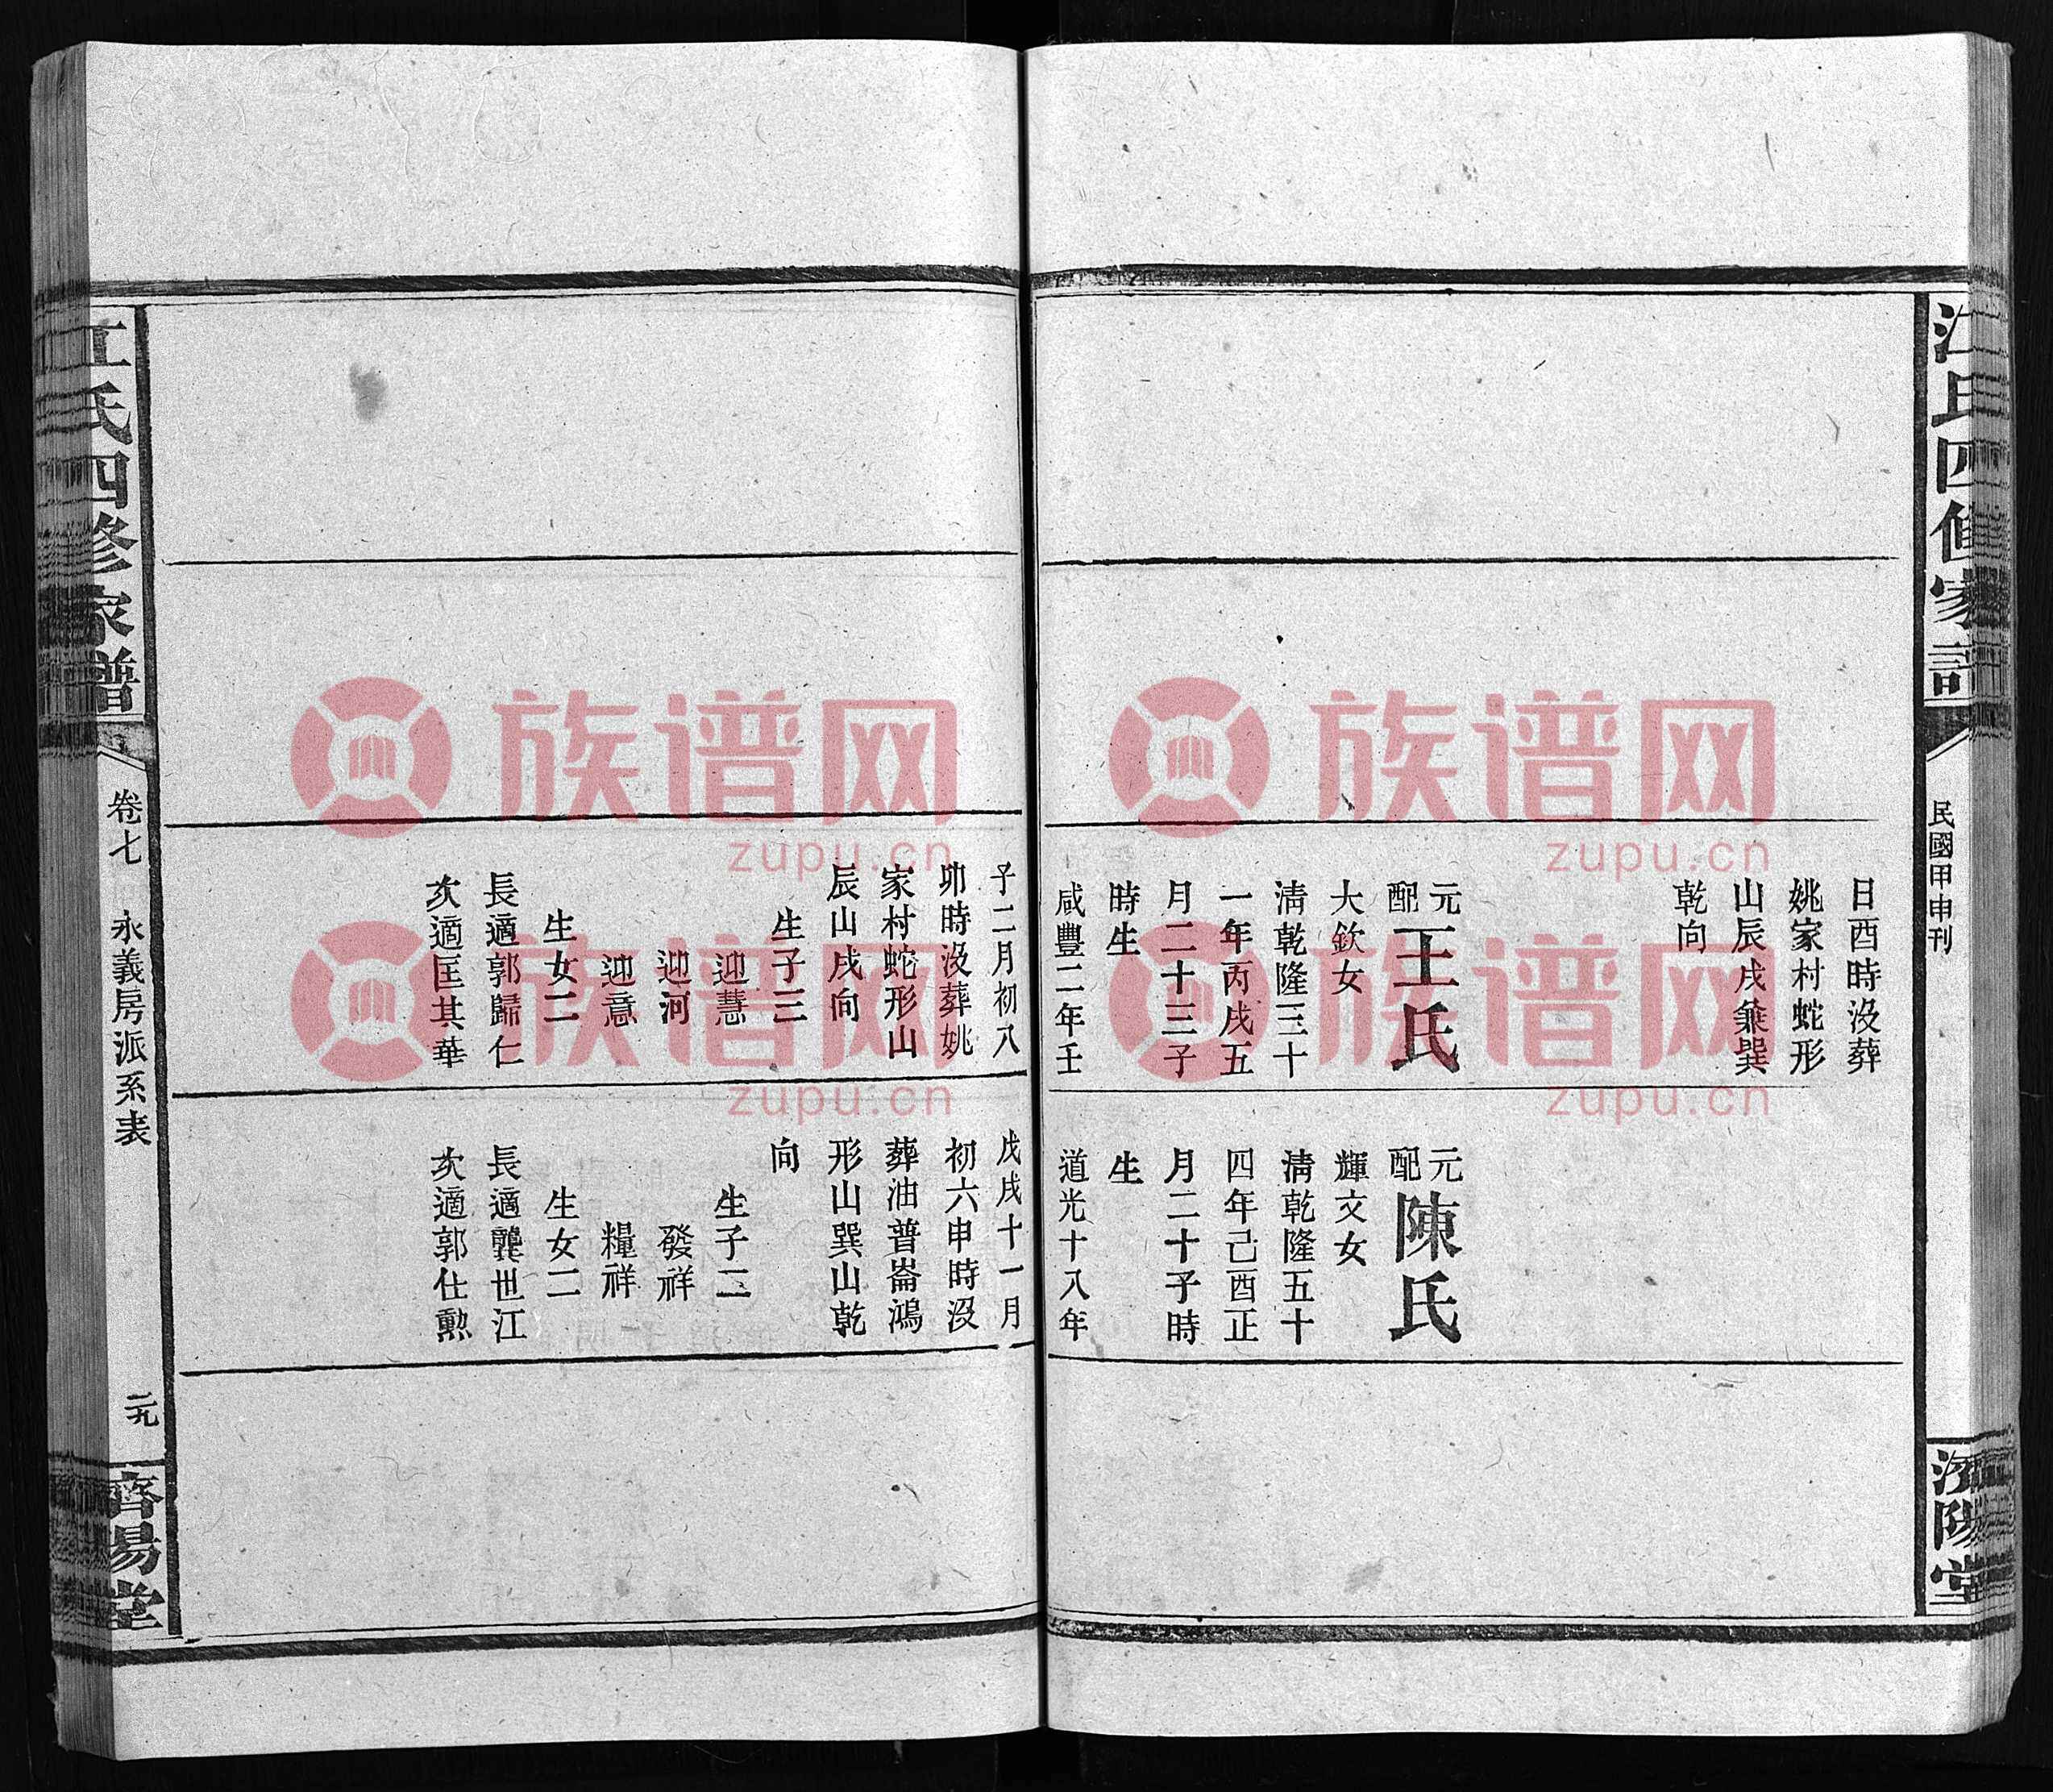 江氏四修家譜
民國甲申刊
濟陽堂
日酉時沒葬
姚家村蛇形
山辰戌兼巽
乾向
元配王氏
大欽女
清乾隆三十
一年丙戌五
月二十三子
時生
咸豐二年壬
元配陳氏
輝文女
清乾隆五十
四年己酉正
月二十子時
生
道光十八年
子二月初八
卯時沒葬姚
家村蛇形山
辰山戌向
生子三
迎慧
迎河
迎意
生女二
長適郭歸仁
次適匡其華
戊戌十一月
初六申時沒
葬油普崙鴻
形山巽山乾
向
生子二
發祥
糧祥
生女二
長適龔世江
次適郭仕勲
江氏四修家譜
卷七 永義房派系表
二九
濟陽堂
族谱网
zupu.cn
族谱网
zupu.cn
族谱网
zupu.cn
族谱网
zupu.cn